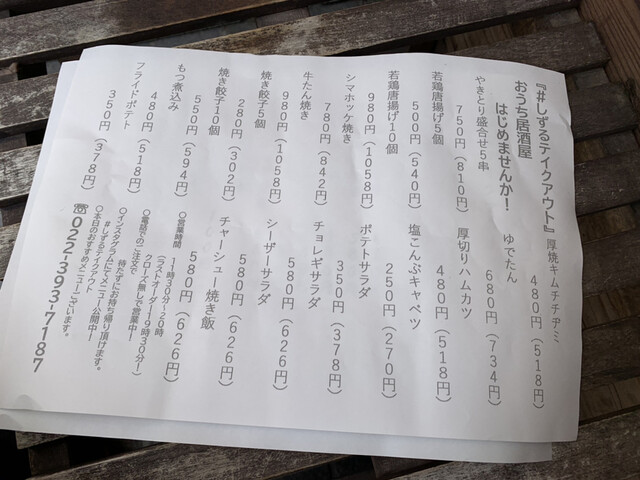 『#しずるテイクアウト』
おうち居酒屋
はじめませんか！
やきとり盛合せ5串
750円（810円）
若鶏唐揚げ5個
500円（540円）
若鶏唐揚げ10個
980円（1058円）
シマホッケ焼き
780円（842円）
牛たん焼き
980円（1058円）
焼き餃子5個
280円（302円）
焼き餃子10個
550円（594円）
もつ煮込み
480円（518円）
フライドポテト
350円（378円）
厚焼キムチチヂミ
480円（518円）
ゆでたん
680円（734円）
厚切りハムカツ
480円（518円）
塩こんぶキャベツ
250円（270円）
ポテトサラダ
350円（378円）
チョレギサラダ
580円（626円）
シーザーサラダ
580円（626円）
チャーシュー焼き飯
580円（626円）
○営業時間　11時30分-20時
（ラストオーダー19時30分）
クローズ無しで営業中！
○電話でのご注文で
待たずにお持ち帰り頂けます。
○インスタグラムにてメニュー公開中！
#しずるテイクアウト
○本日のおすすめメニューございます。
☎022-393-7187